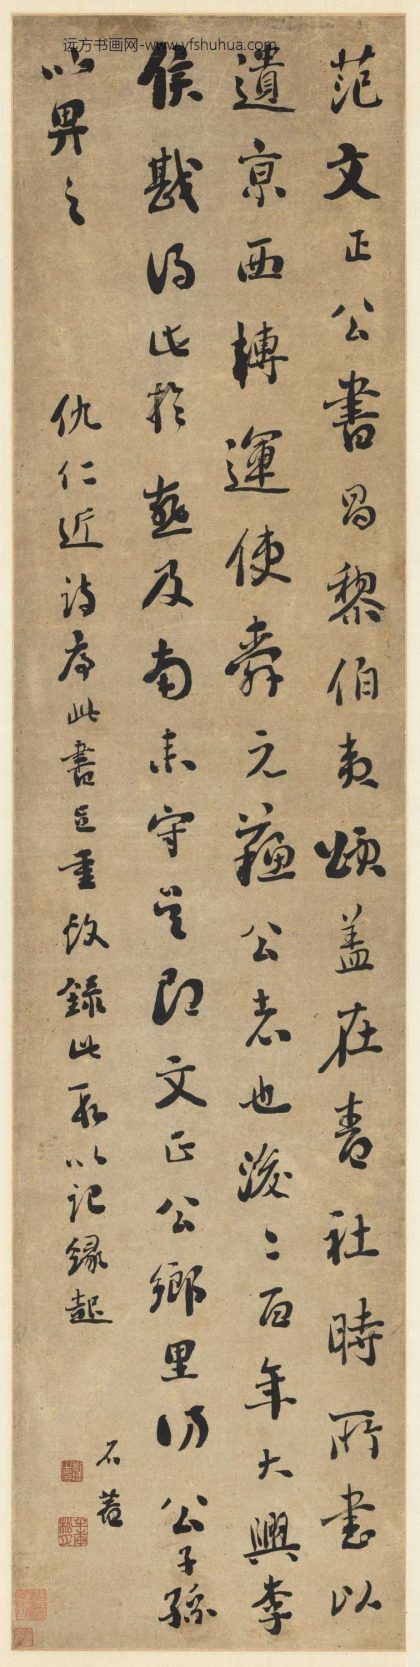 远方书画网-www.yfshuhua.com
范文正公書昌黎伯夷頌蓋在青社時所書以
遺京西轉運使舜元蘓公者也後二百年大興李
侯戡得此於燕及南来守吴即文正公鄉里訪公子孫
以畀之
仇仁近詩序此書重故録此段以記緣起
石菴